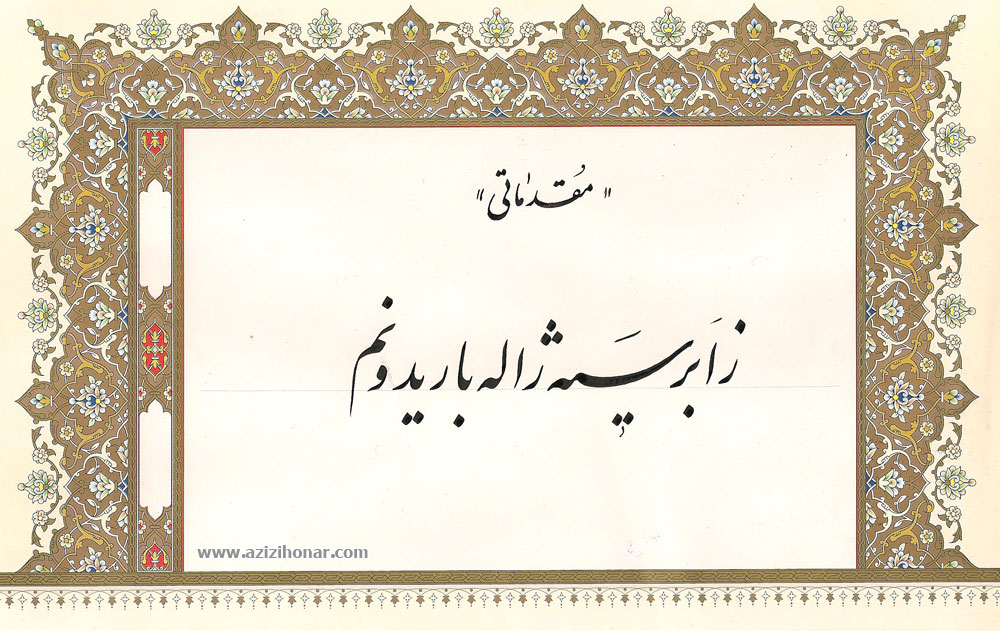 " مُقدماتی "
ز اَبر سیَه ژاله بارید و نم
www.azizihonar.com